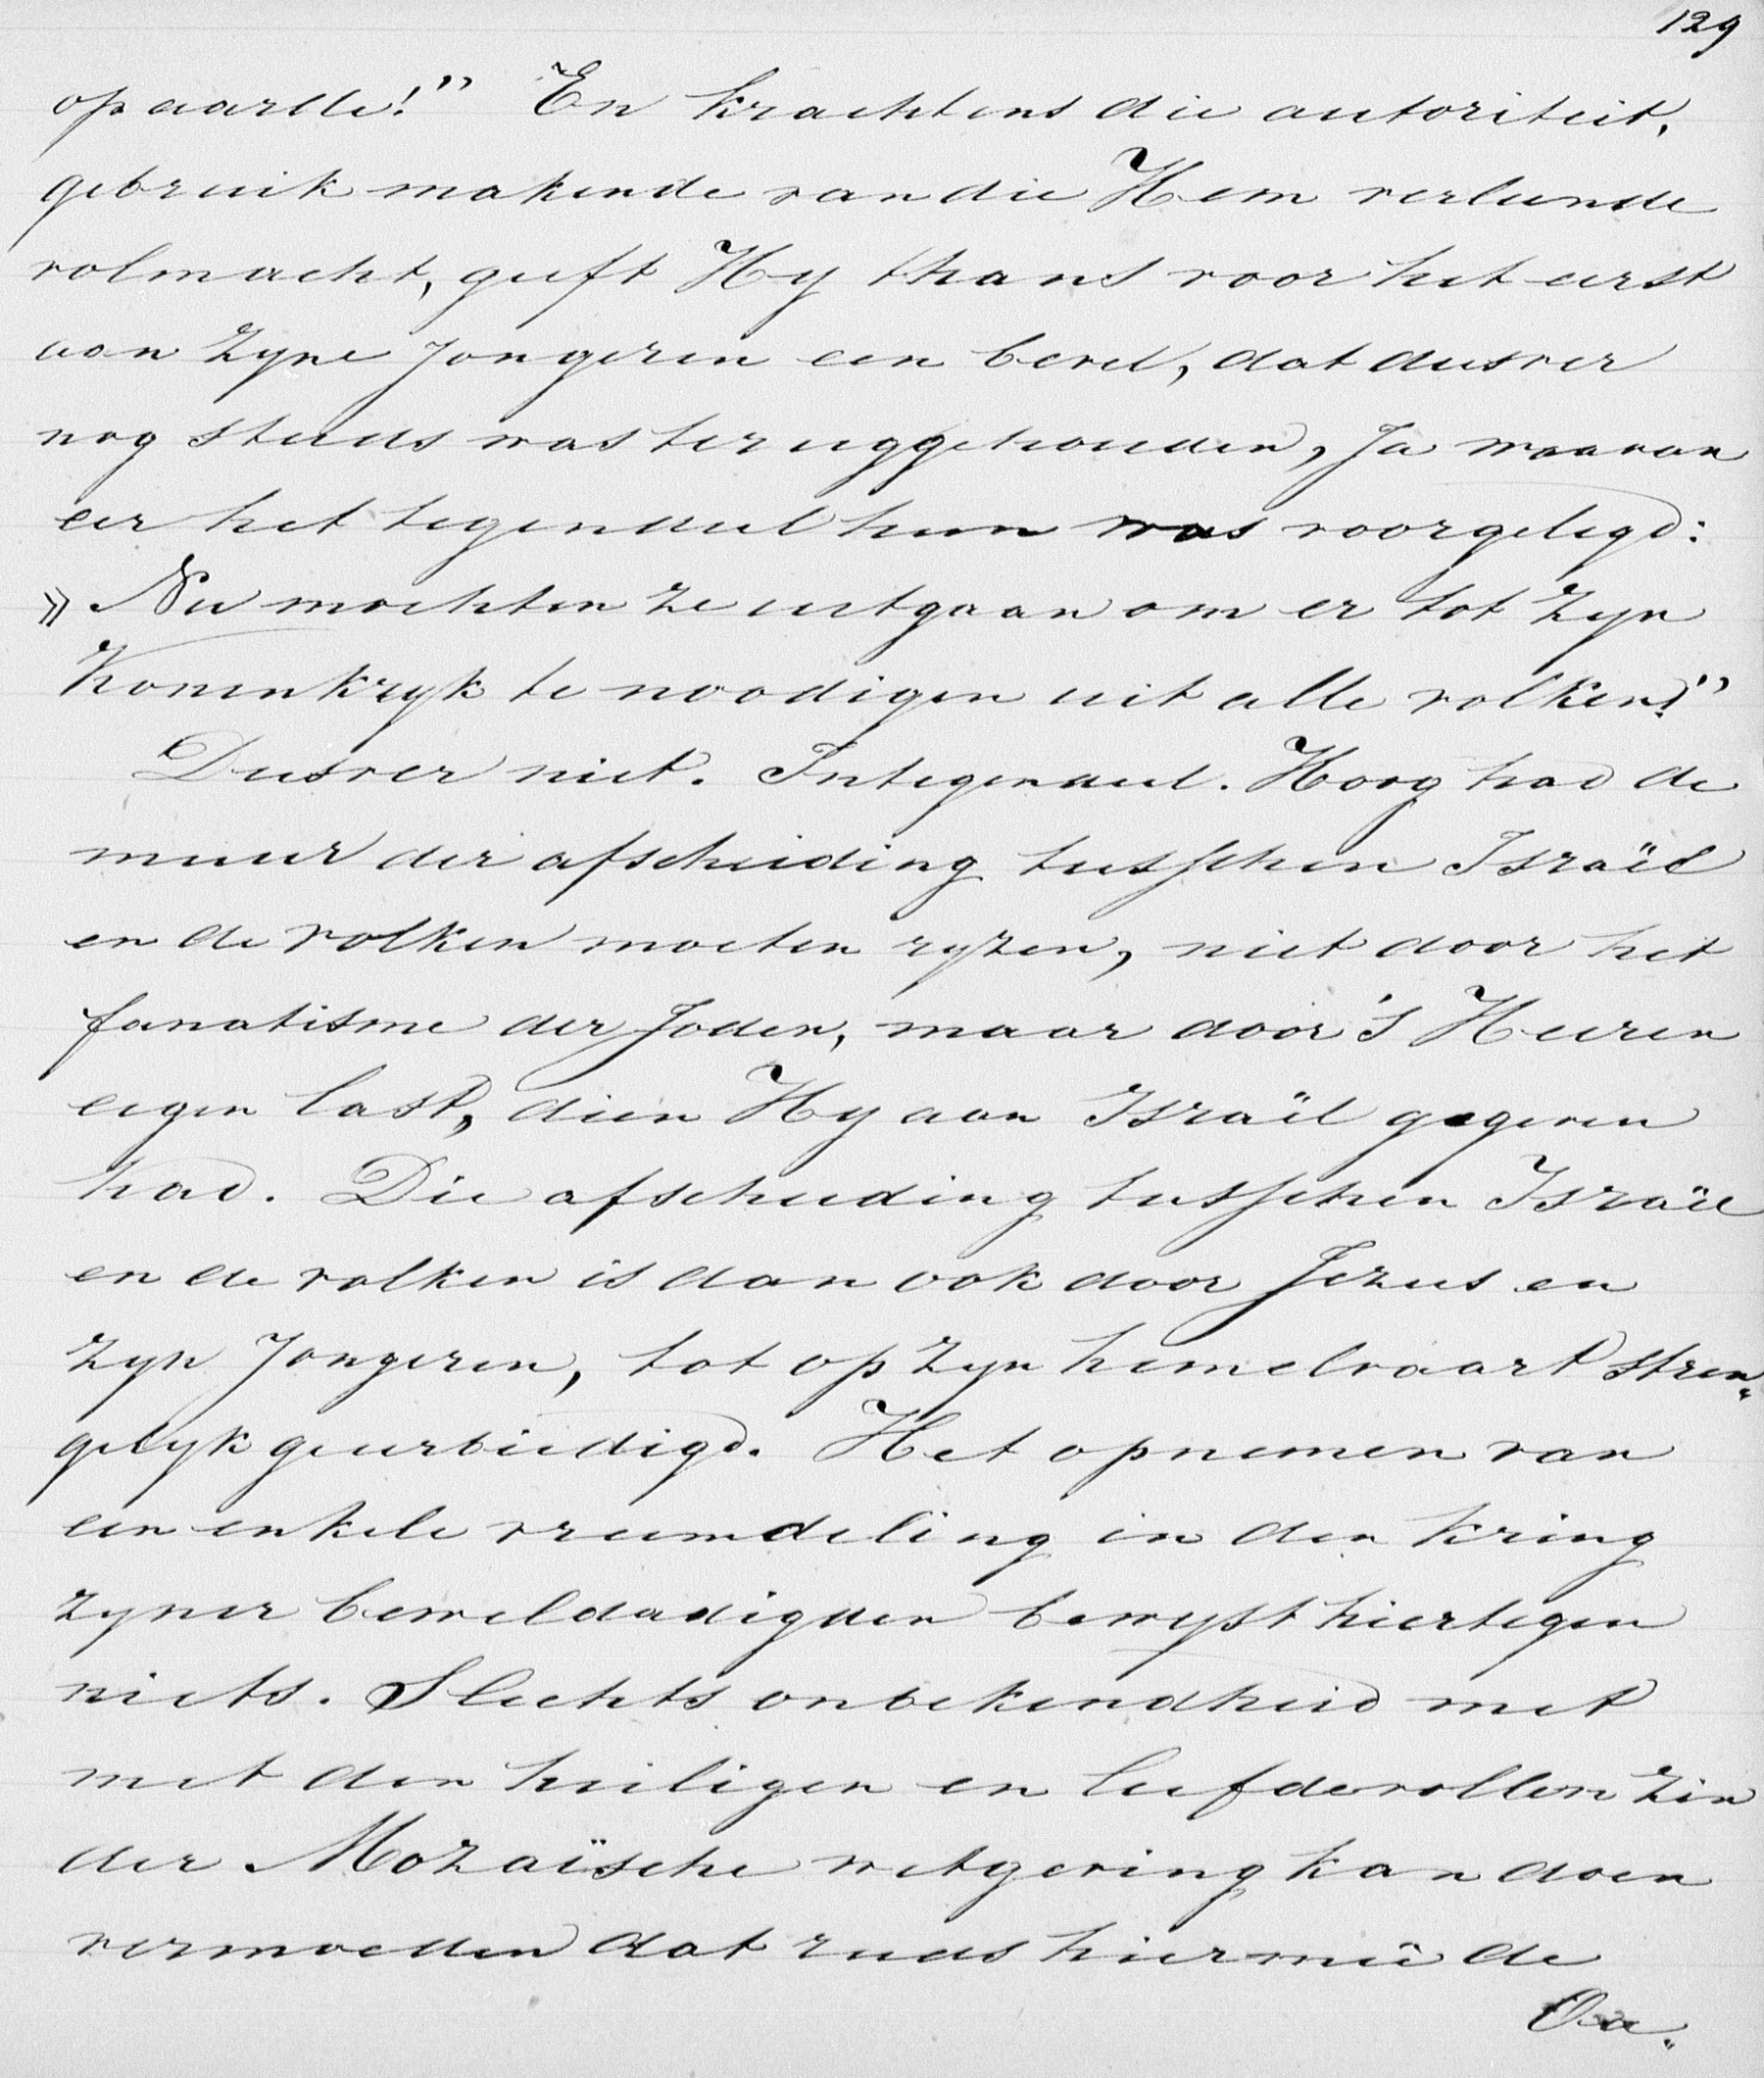 129
op aarde!" En krachtens die autoriteit,
gebruik makende van die Hem verleende
volmacht, geeft Hy thans voor het eerst
aan zyne Jongeren een bevel, dat dusver
nog steeds was teruggehouden, Ja waarvan
eer het tegendeel hun was voorgelegd:
» Nu mochten ze uitgaan om er tot zyn
Koninkryk te noodigen uit alle volken!"
Dusver niet. Integendeel. Hoog had de
muur der afscheiding tusschen Israël
en de volken moeten ryzen, niet door het
fanatisme der Joden, maar door 's Heeren
eigen last, dien Hy aan Israël gegeven
had. Die afscheiding tusschen Israël
en de volken is dan ook door Jezus en
zyn Jongeren, tot op zyn hemelvaart stren„
gelyk geeerbiedigd. Het opnemen van
een enkele vreemdeling in den kring
zyner beweldadigden bewyst hiertegen
niets. Slechts onbekendheid met
met den heiligen en liefdevollen zin
der Mozaïsche wetgeving kan doen
vermoeden dat reeds hiermeê de
Oa„